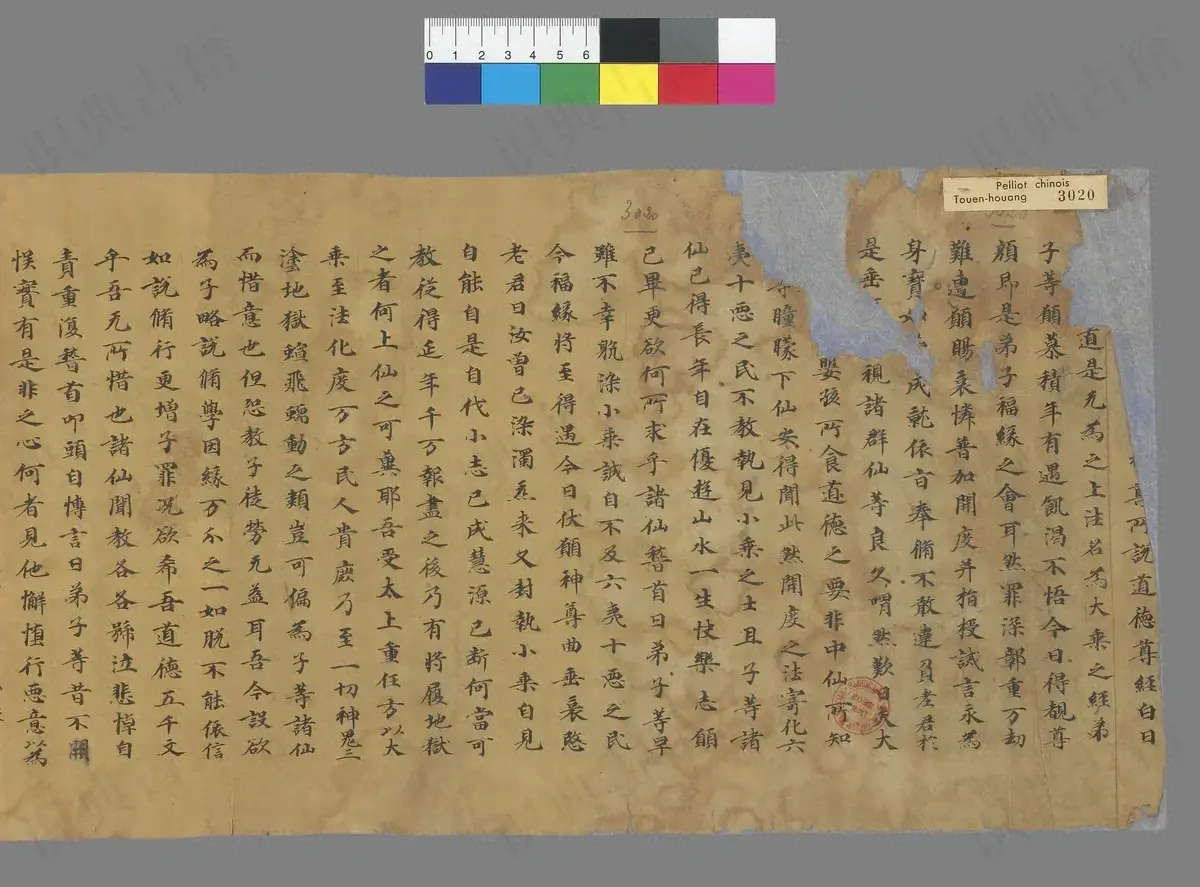 0 1 2 3 4 5 6
Pelliot chinois
Touen-houang 3020
3020
所說道德尊經白日
道是无為之上法名為大乘之經弟
子等願慕積年有遇飢渴不悟今日得覩尊
顔即是弟子福緣之會耳然罪深鄣重万劫
難遭願賜哀憐普加開度并指授誡言永為
身寶 成乾依言奉脩不敢違負老君於
是垂 視諸群仙等良久喟然歎曰 大
嬰孩所食道德之要非中仙所知
瞳矇下仙安得聞此然開度之法寄化六
夷十惡之民不教執見小乘之士且子等諸
仙已得長年自在優遊山水一生快樂志願
已畢更欲何所求乎諸仙稽首曰弟子等早
雖不幸躭染小乘誠自不及六夷十惡之民
今福緣將至得遇今日伏願神尊曲垂哀愍
老君曰汝曽已染濁炁来又封執小乘自見
自能自是自代小志已成慧源已断何當可
教従得延年千万報盡之後乃有將履地獄
之者何上仙之可兾耶吾受太上重任方以大
乘至法化度万方民人貴庶乃至一切神鬼三
塗地獄蝖飛蠕動之類豈可偏為子等諸仙
而惜意也但恐教子徒勞无益耳吾今設欲
為子略說脩學因緣万分之一如脱不能依信
如說脩行更增子罪况欲希吾道德五千文
乎吾无所惜也諸仙聞教各各號泣悲悼自
責重復稽首叩頭自慱言曰弟子等昔不闚
悮實有是非之心何者見他懈惰行惡意以為
識典古籍